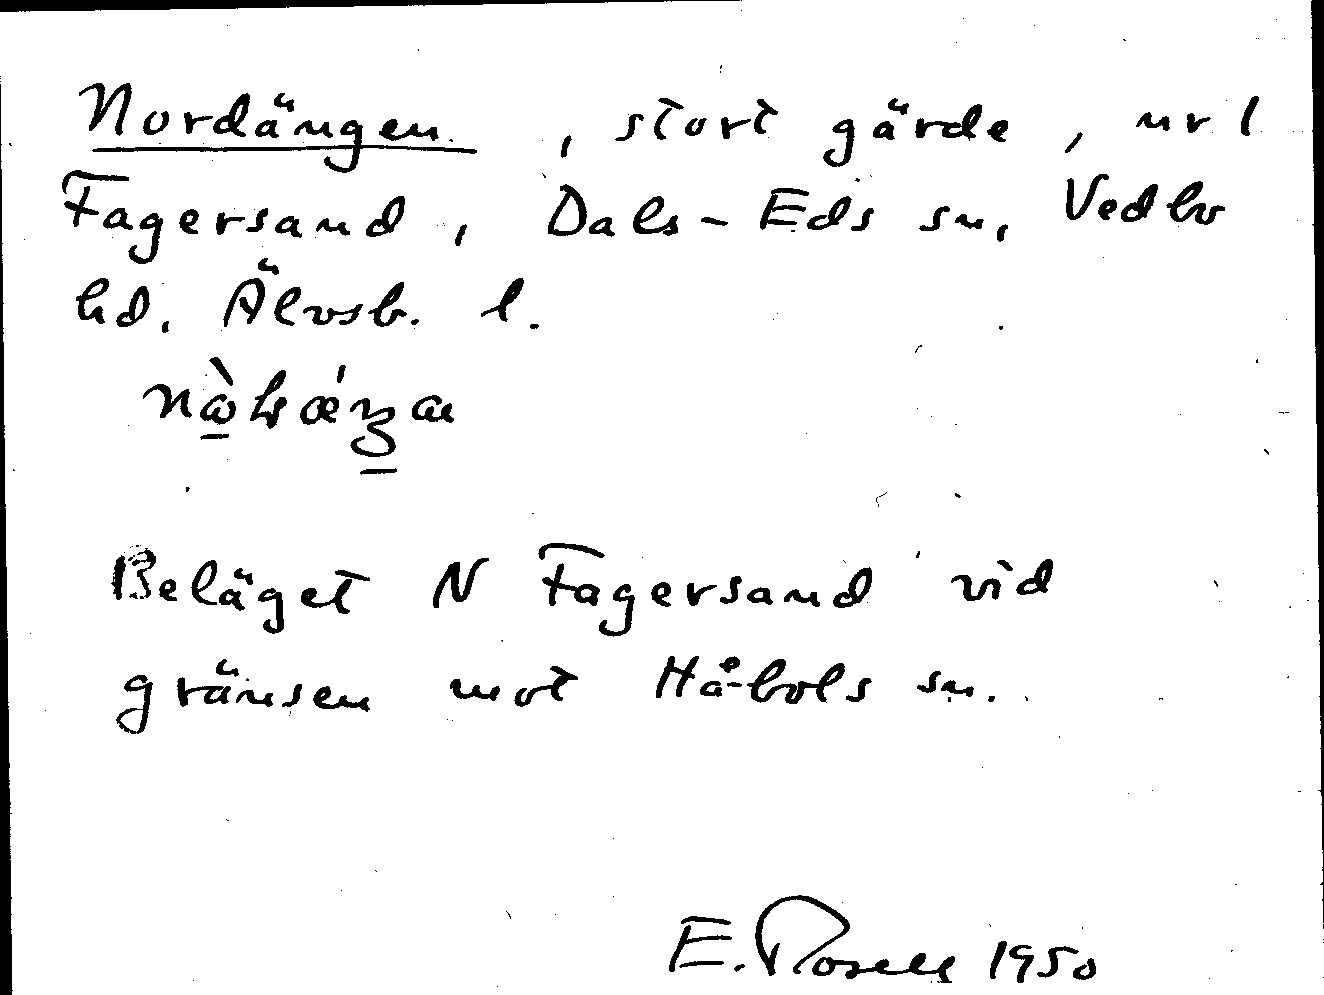 Nordängen, stort gärde, nr 1
Fagersand, Dals-Eds sn, Vedbo
hd. Älvsb. l.
Beläget N Fagersand vid
gränsen mot Håbols sn.
E. Rosell 1950